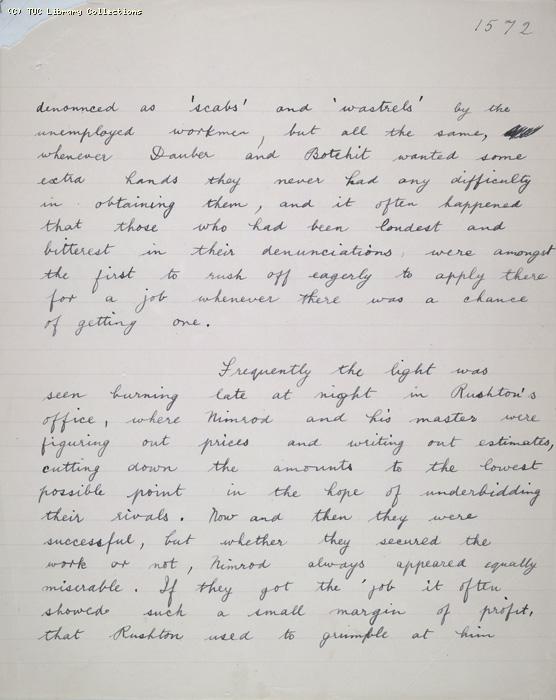 (C) TUC Library Collections
1572
denounced as 'scabs' and 'wastrels' by the
unemployed workmen, but all the same,
whenever Dauber and Botchit wanted some
extra hands they never had any difficulty
in obtaining them, and it often happened
that those who had been loudest and
bitterest in their denunciations, were amongst
the first to rush off eagerly to apply there
for a job whenever there was a chance
of getting one.
Frequently the light was
seen burning late at night in Rushton's
office, where Nimrod and his master were
figuring out prices and writing out estimates,
cutting down the amounts to the lowest
possible point in the hope of underbidding
their rivals. Now and then they were
successful, but whether they secured the
work or not, Nimrod always appeared equally
miserable. If they got the 'job it often
showed such a small margin of profit,
that Rushton used to grumble at him